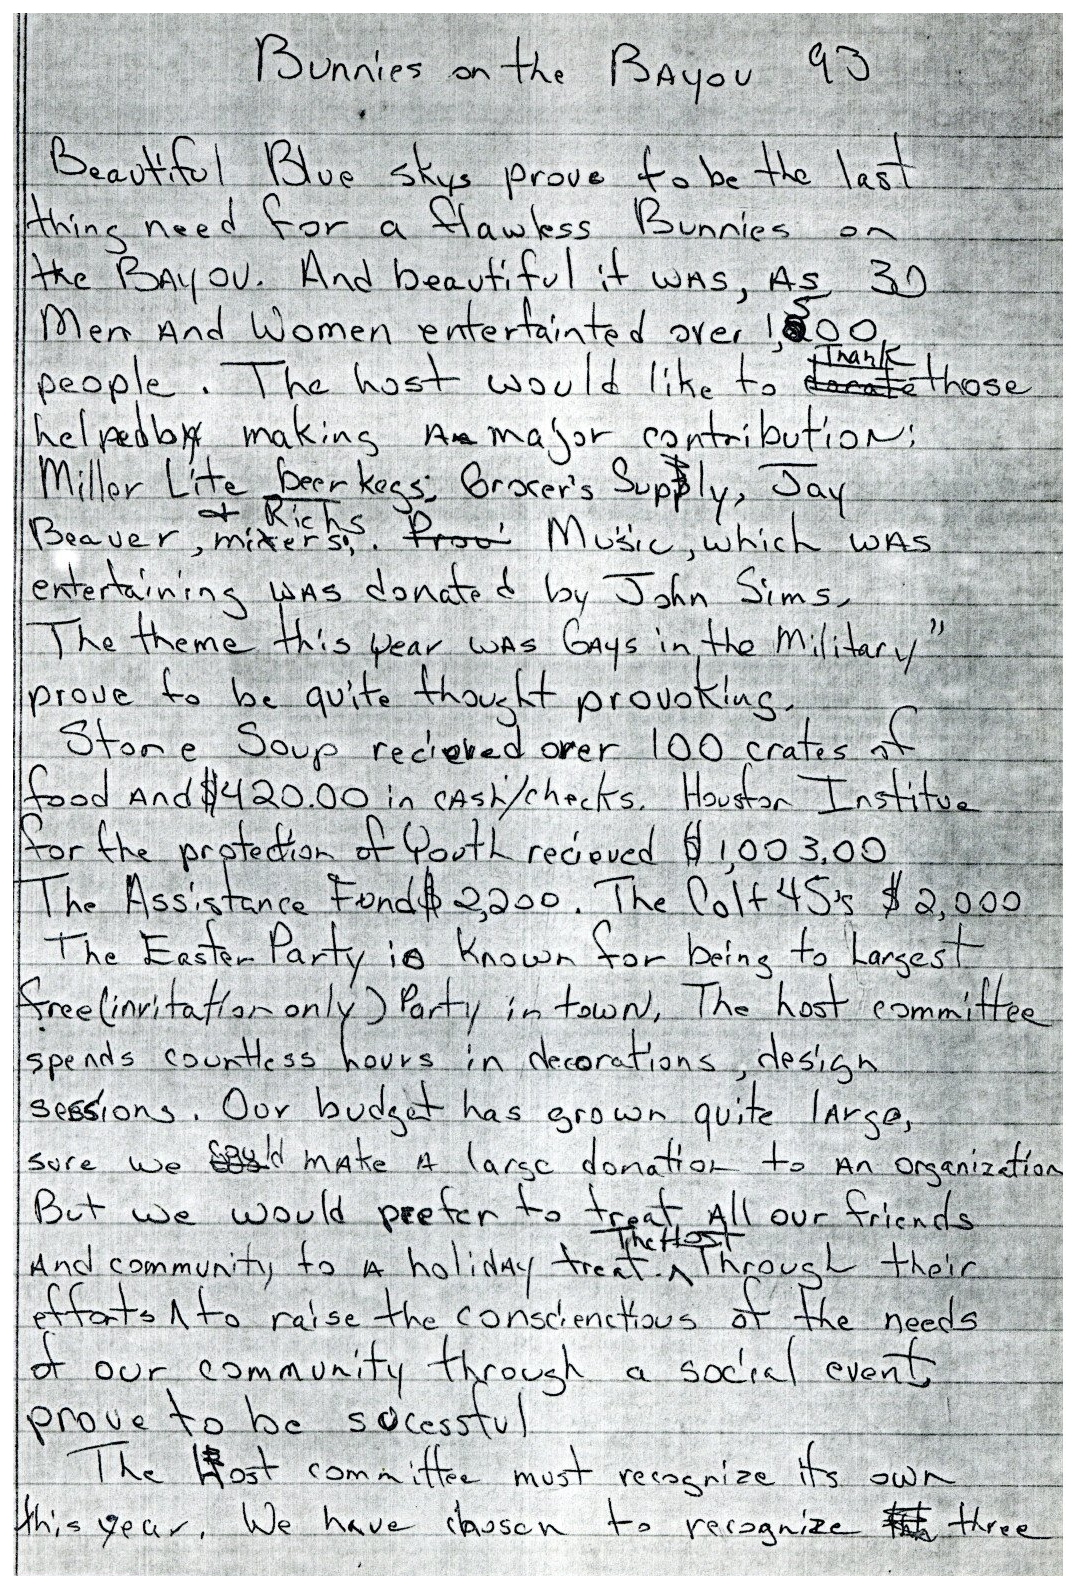 Bunnies on the BAyou 93
Beautiful Blue skys prove to be the last
thing need for a flawless Bunnies on
the BAyou. And beautiful it wAs, As 30
Men And Women entertainted over 1,500
Thank
people. The host would like to donate those
helpedby making A major contribution:
Miller Lite beer kegs; Grocer's Supply, Jay
& Richs
Beaver, mixers;. Prov Music, which wAs
entertaining wAs donated by John Sims.
The theme this year wAs GAys in the Military"
prove to be quite thought provoking.
Stone Soup recieved over 100 crates of
food And $420.00 in cAsh/checks. Houston Institue
for the protection of Youth recieved $1,003.00
The Assistance Fund $2,200. The Colt 45's $2,000
The Easter Party is known for being to Largest
free (invitation only) Party in town. The host committee
spends countless hours in decorations, design
sessions. Our budget has grown quite lArge,
sure we could mAke A large donation to An organization
But we would prefer to treat All our friends
The Host
And community to A holidAy treat. ^ Through their
efforts ^ to raise the consciencetious of the needs
of our community through a social event,
prove to be sucessful
The Host committee must recognize its own
this year. We have chosen to recognize three